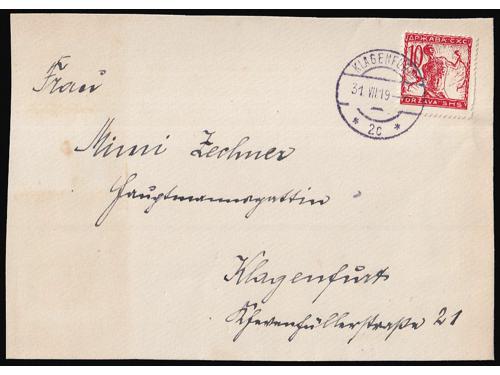 ДРЖАВА СХС
10
DRŽAVA SHS
KLAGENFURT
31 VII 19
* 2c *
Frau
Mimi Zechner
Hauptmannsgattin
Klagenfurt
Khevenhüllerstraße 21